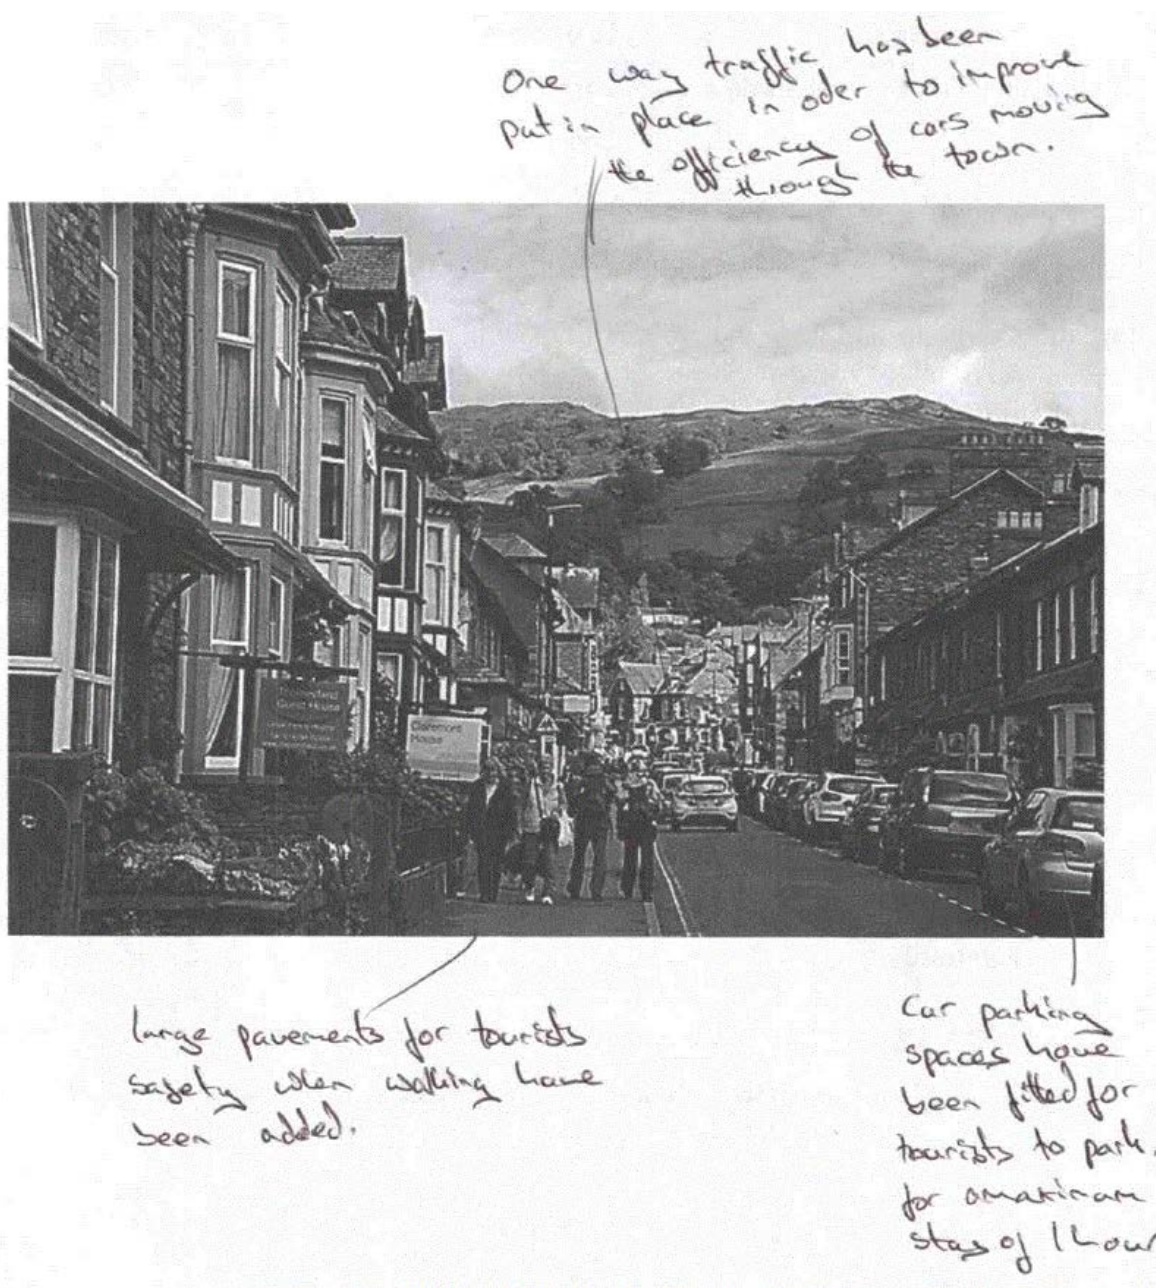 One way traffic has been
put in place in oder to improve
the efficiency of cars moving
through the town.
Guest House
Claremont
House
large pavements for tourists
safety when walking have
been added.
Car parking
spaces have
been fitted for
tourists to park.
for a maximum
stay of 1 hour